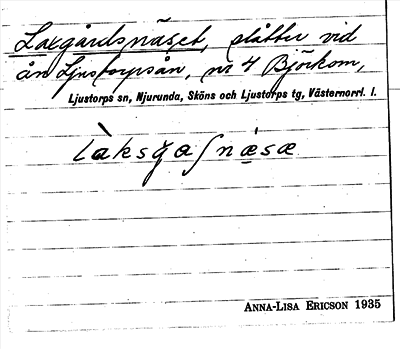 Laxgårdsnäset, slåtter vid
ån Ljustorpsån, nr 4 Björkom,
Ljustorps sn, Njurunda, Sköns och Ljustorps tg, Västernorrl. l.
ANNA-LISA ERICSON 1935